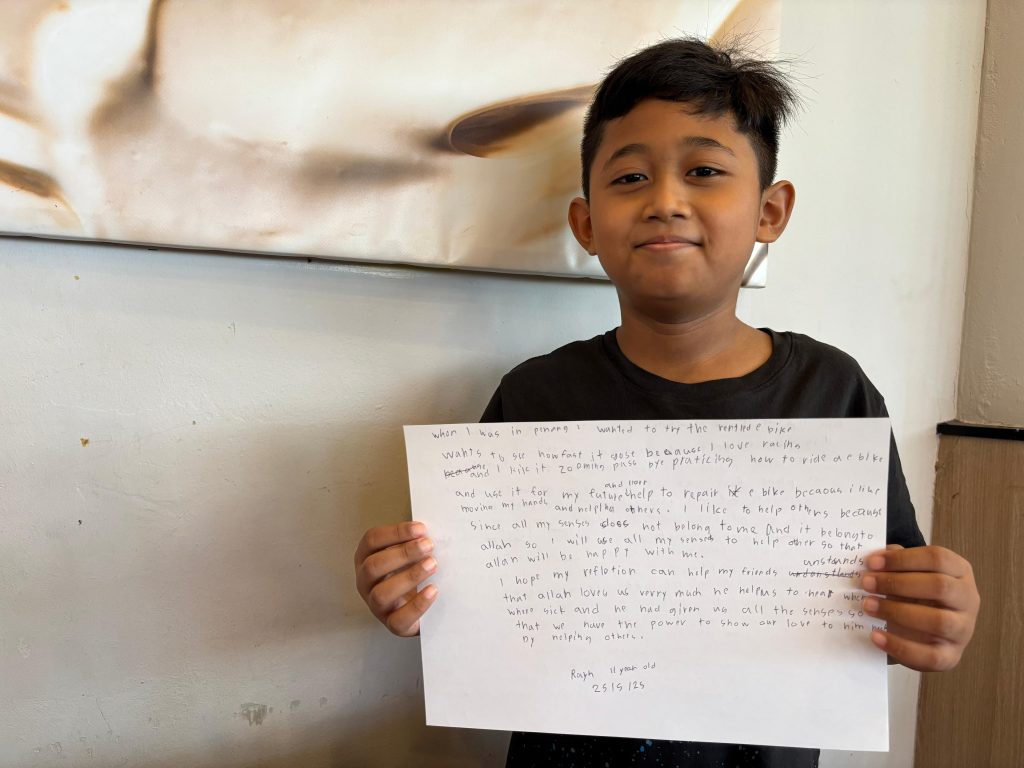 when I was in pinang i wanted to try the rented e bike
wants to see how fast it gose because I love racing
and I like it zooming pass bye praticing how to ride a e bike
and learn
and use it for my future help to repair e bike becaous i like
moving my hands and helping others. I like to help others because
since all my senses does not belong to me and it belong to
allah so i will use all my senses to help other so that
allah will be happy with me.
unstands
I hope my refletion can help my friends
that allah loves us verry much he helpns to heal when
where sick and he had given us all the senses so
that we have the power to show our love to him
by helping others.
11 year old
25/5/25